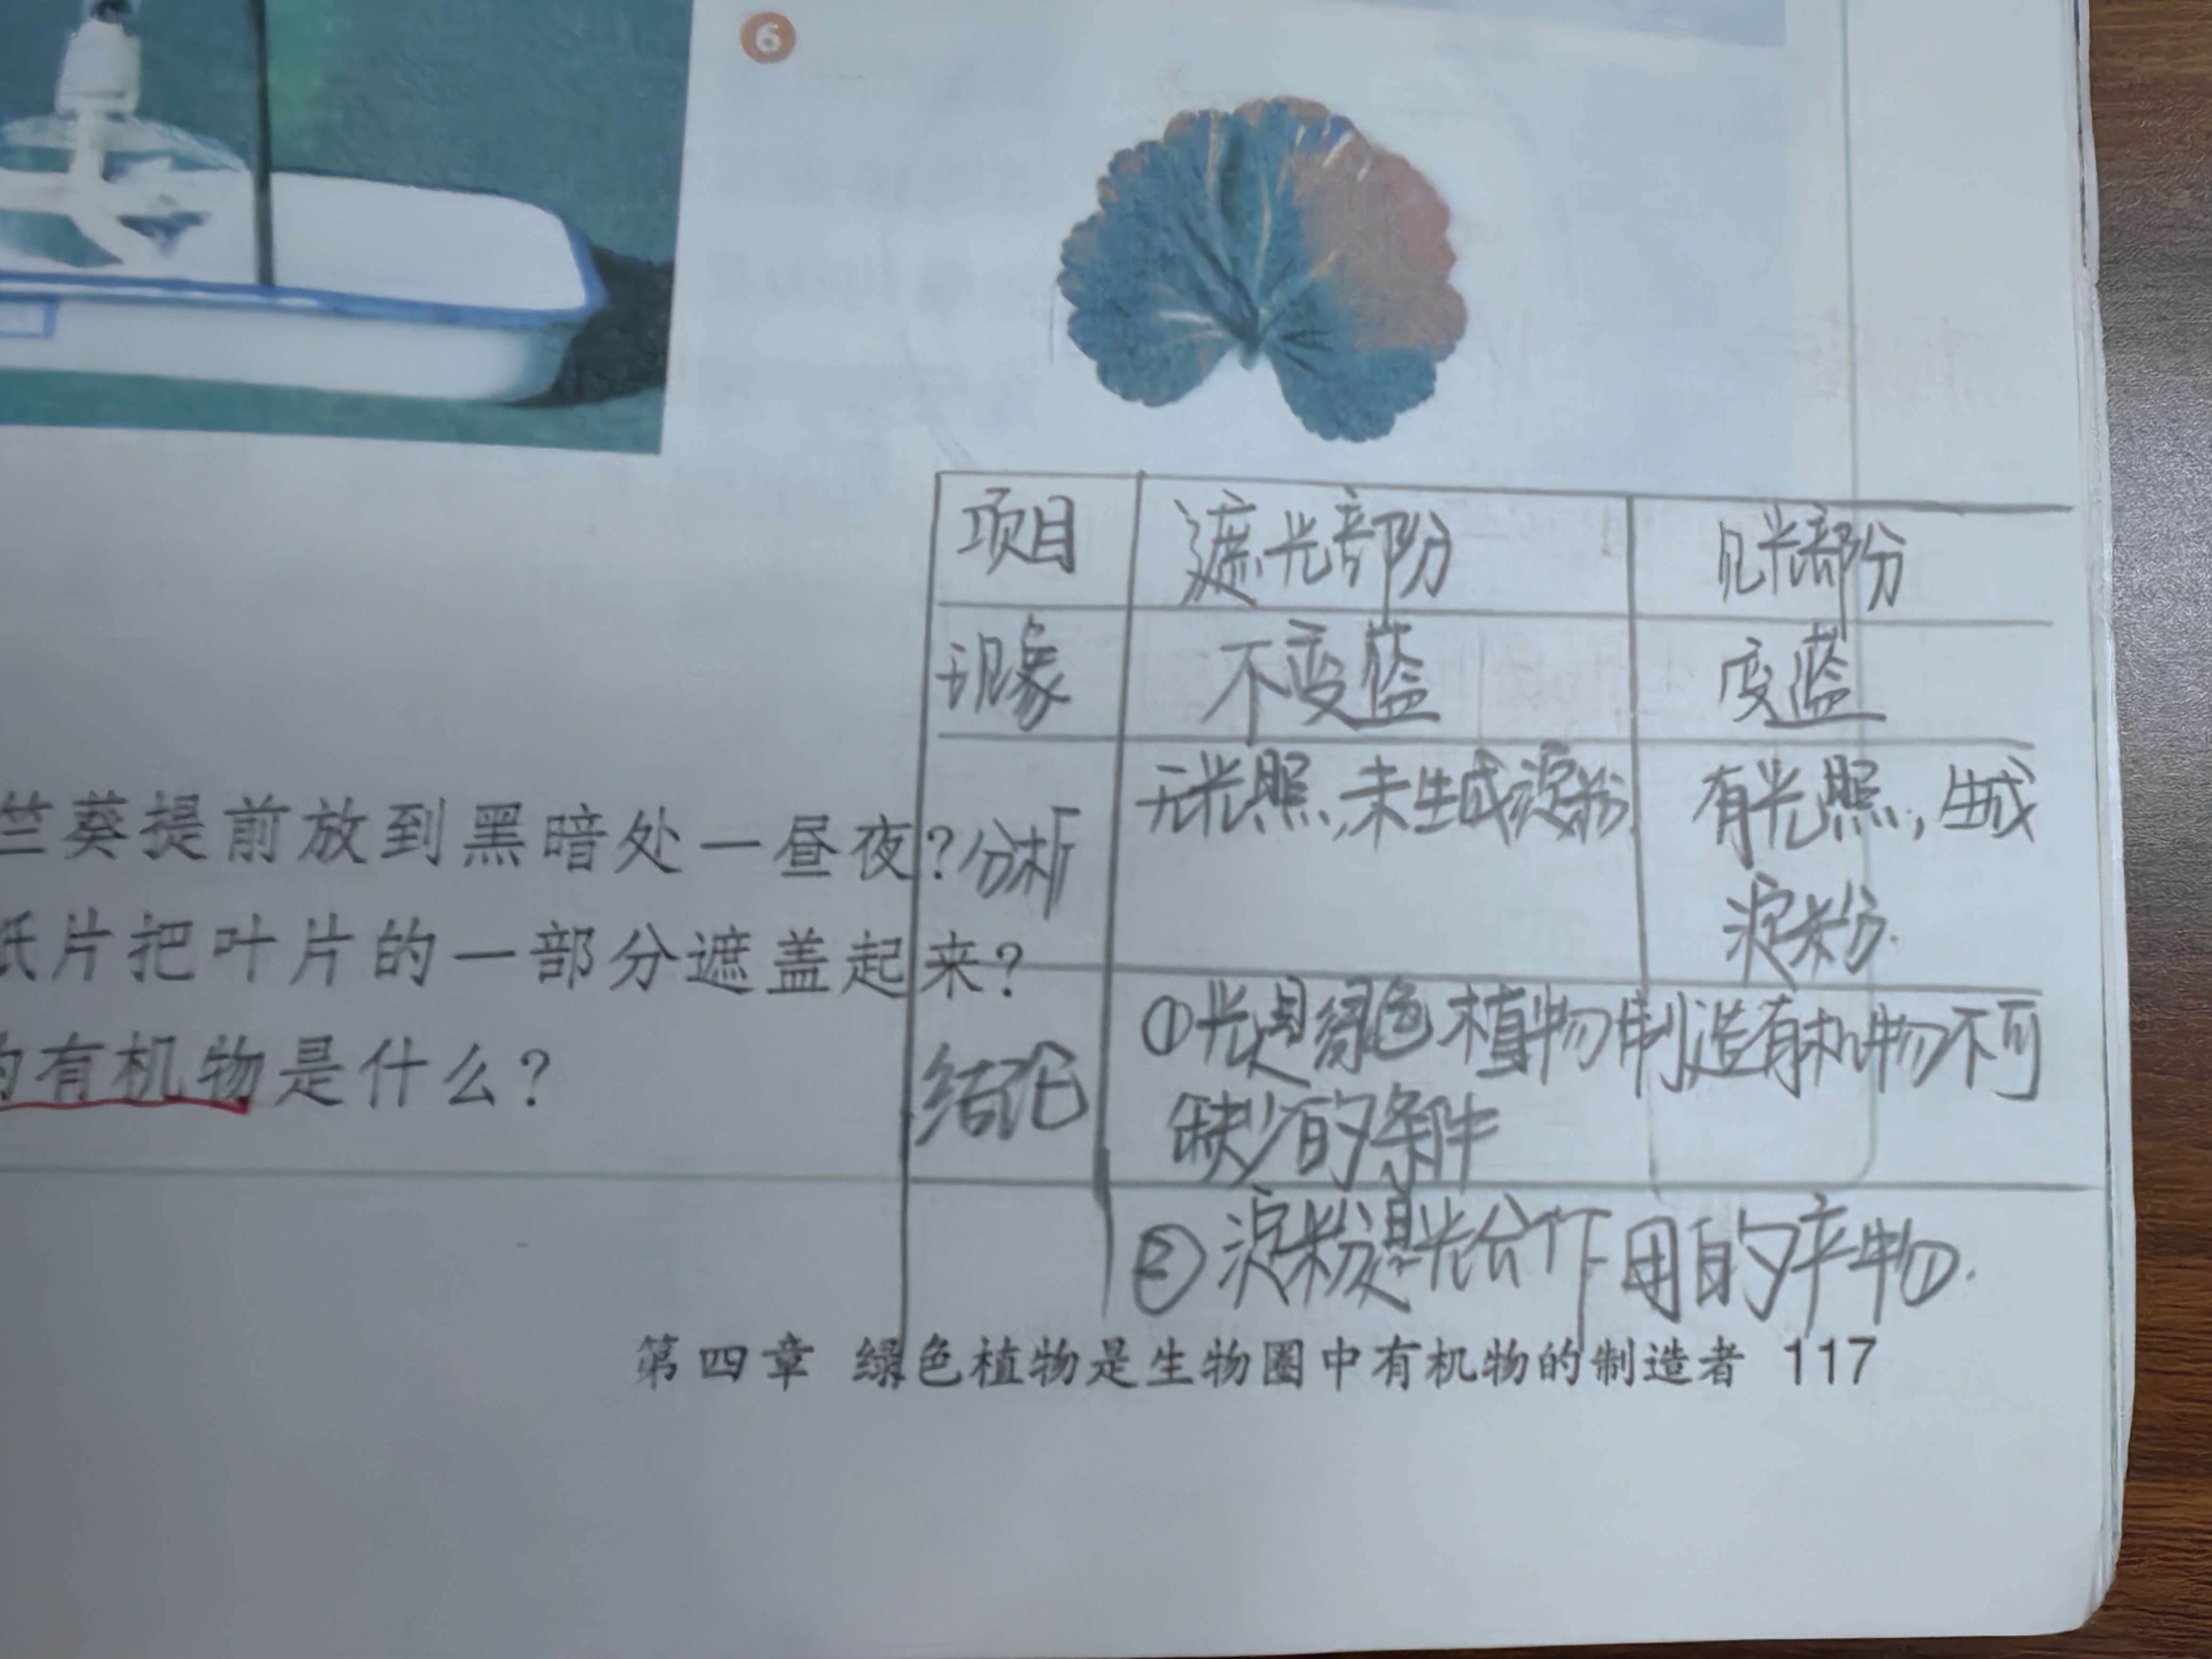 6
项目 遮光部份 见光部份
现象 不变蓝 变蓝
无光照,未生成淀粉 有光照,生成
竺葵提前放到黑暗处一昼夜? 分析
淀粉.
纸片把叶片的一部分遮盖起来?
①光是绿色植物制造有机物不可
的有机物是什么? 结论
缺少的条件
②淀粉是光合作用的产物.
第四章 绿色植物是生物圈中有机物的制造者 117